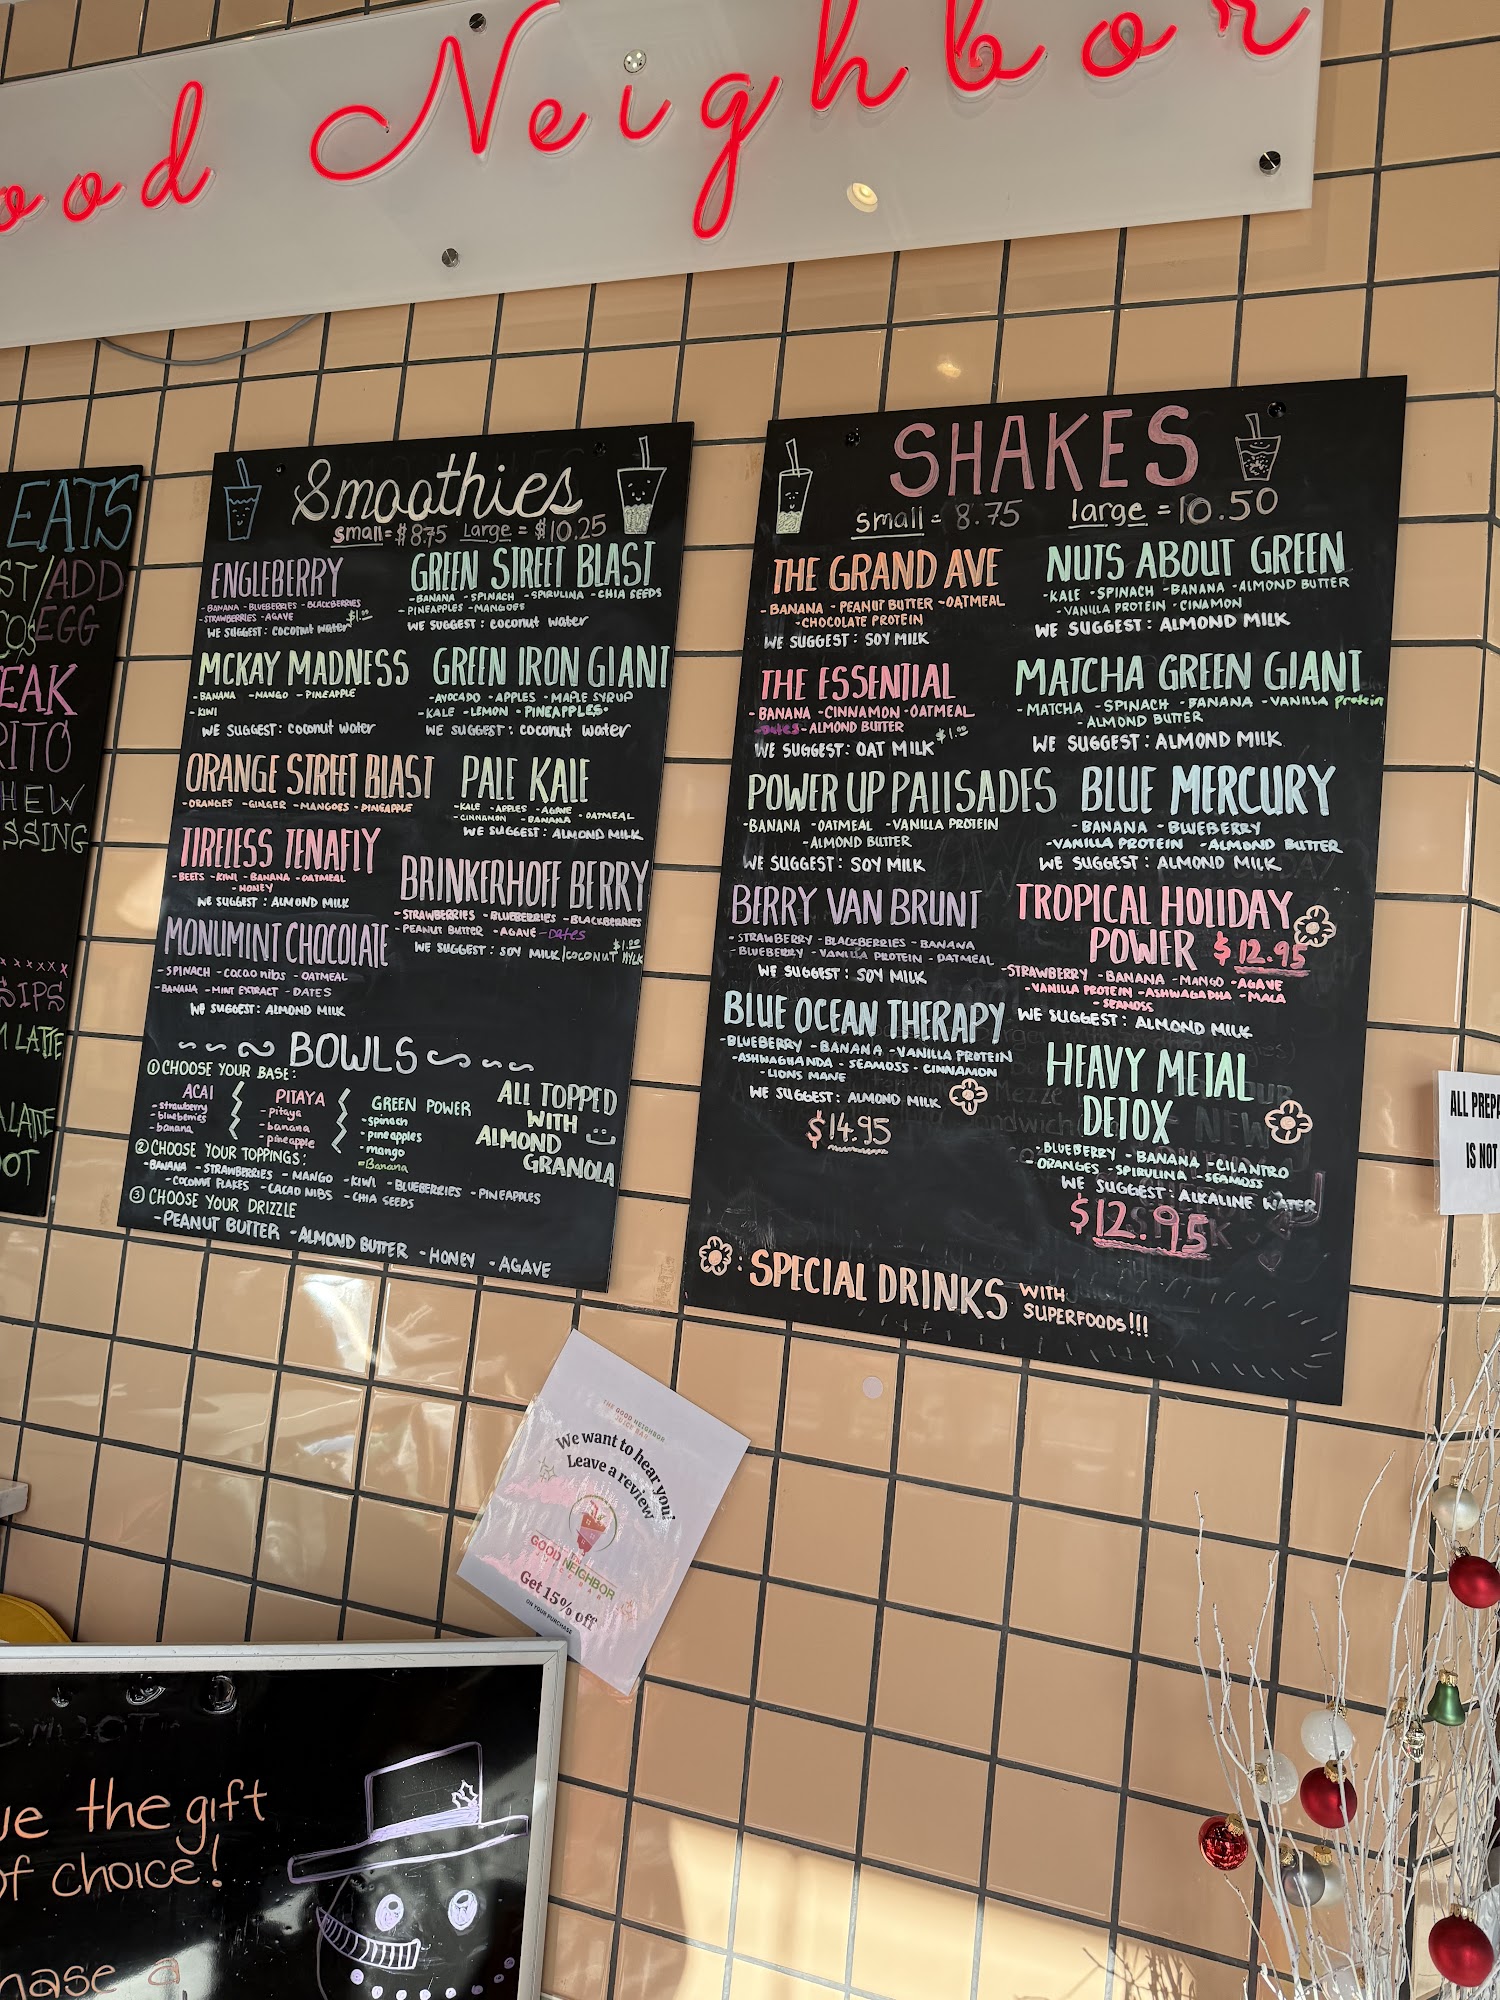 ood Neighbor
EATS
ST/ADD
EGG
EAK
RITO
HEW
SSING
xxxxxx
SIPS
LATTE
LATTE
OOT
Smoothies
small = $8.75 Large = $10.25
ENGLEBERRY
- BANANA - BLUEBERRIES - BLACKBERRIES
- STRAWBERRIES - AGAVE
WE SUGGEST: coconut water $1.00
GREEN STREET BLAST
- BANANA - SPINACH - SPIRULINA - CHIA SEEDS
- PINEAPPLES - MANGOES
WE SUGGEST: coconut water
MCKAY MADNESS
- BANANA - MANGO - PINEAPPLE
- KIWI
WE SUGGEST: coconut water
GREEN IRON GIANT
- AVOCADO - APPLES - MAPLE SYRUP
- KALE - LEMON - PINEAPPLES
WE SUGGEST: coconut water
ORANGE STREET BLAST
- ORANGES - GINGER - MANGOES - PINEAPPLE
PALE KALE
- KALE - APPLES - AGAVE
- CINNAMON - BANANA - OATMEAL
WE SUGGEST: ALMOND MILK
TIRELESS TENAFLY
- BEETS - KIWI - BANANA - OATMEAL
- HONEY
WE SUGGEST: ALMOND MILK
BRINKERHOFF BERRY
- STRAWBERRIES - BLUEBERRIES - BLACKBERRIES
- PEANUT BUTTER - AGAVE - Dates
WE SUGGEST: SOY MILK/COCONUT MYLK $1.00
MONUMINT CHOCOLATE
- SPINACH - cacao nibs - OATMEAL
- BANANA - MINT EXTRACT - DATES
WE SUGGEST: ALMOND MILK
BOWLS
① CHOOSE YOUR BASE:
ACAI
- strawberry
- blueberries
- banana
PITAYA
- pitaya
- banana
- pineapple
GREEN POWER
- spinach
- pineapples
- mango
- Banana
ALL TOPPED
WITH
ALMOND
GRANOLA
② CHOOSE YOUR TOPPINGS:
- BANANA - STRAWBERRIES - MANGO - KIWI - BLUEBERRIES - PINEAPPLES
- COCONUT FLAKES - CACAO NIBS - CHIA SEEDS
③ CHOOSE YOUR DRIZZLE
- PEANUT BUTTER - ALMOND BUTTER - HONEY - AGAVE
SHAKES
small = 8.75 large = 10.50
THE GRAND AVE
- BANANA - PEANUT BUTTER - OATMEAL
- CHOCOLATE PROTEIN
WE SUGGEST: SOY MILK
NUTS ABOUT GREEN
- KALE - SPINACH - BANANA - ALMOND BUTTER
- VANILLA PROTEIN - CINAMON
WE SUGGEST: ALMOND MILK
THE ESSENTIAL
- BANANA - CINNAMON - OATMEAL
- Dates - ALMOND BUTTER
WE SUGGEST: OAT MILK + $1.00
MATCHA GREEN GIANT
- MATCHA - SPINACH - BANANA - VANILLA protein
- ALMOND BUTTER
WE SUGGEST: ALMOND MILK
POWER UP PALISADES
- BANANA - OATMEAL - VANILLA PROTEIN
- ALMOND BUTTER
WE SUGGEST: SOY MILK
BLUE MERCURY
- BANANA - BLUEBERRY
- VANILLA PROTEIN - ALMOND BUTTER
WE SUGGEST: ALMOND MILK
BERRY VAN BRUNT
- STRAWBERRY - BLACKBERRIES - BANANA
- BLUEBERRY - VANILLA PROTEIN - OATMEAL
WE SUGGEST: SOY MILK
TROPICAL HOLIDAY
POWER $12.95
- STRAWBERRY - BANANA - MANGO - AGAVE
- VANILLA PROTEIN - ASHWAGADHA - MACA
- SEAMOSS
WE SUGGEST: ALMOND MILK
BLUE OCEAN THERAPY
- BLUEBERRY - BANANA - VANILLA PROTEIN
- ASHWAGHANDA - SEAMOSS - CINNAMON
- LIONS MANE
WE SUGGEST: ALMOND MILK
$14.95
HEAVY METAL
DETOX
- BLUEBERRY - BANANA - CILANTRO
- ORANGES - SPIRULINA - SEAMOSS
WE SUGGEST: ALKALINE WATER
$12.95
: SPECIAL DRINKS WITH
SUPERFOODS!!!
ALL PREPA
IS NOT
THE GOOD NEIGHBOR
JUICE BAR
We want to hear you!
Leave a review
THE
GOOD NEIGHBOR
Get 15% off
ON YOUR PURCHASE
ve the gift
of choice!
hase a